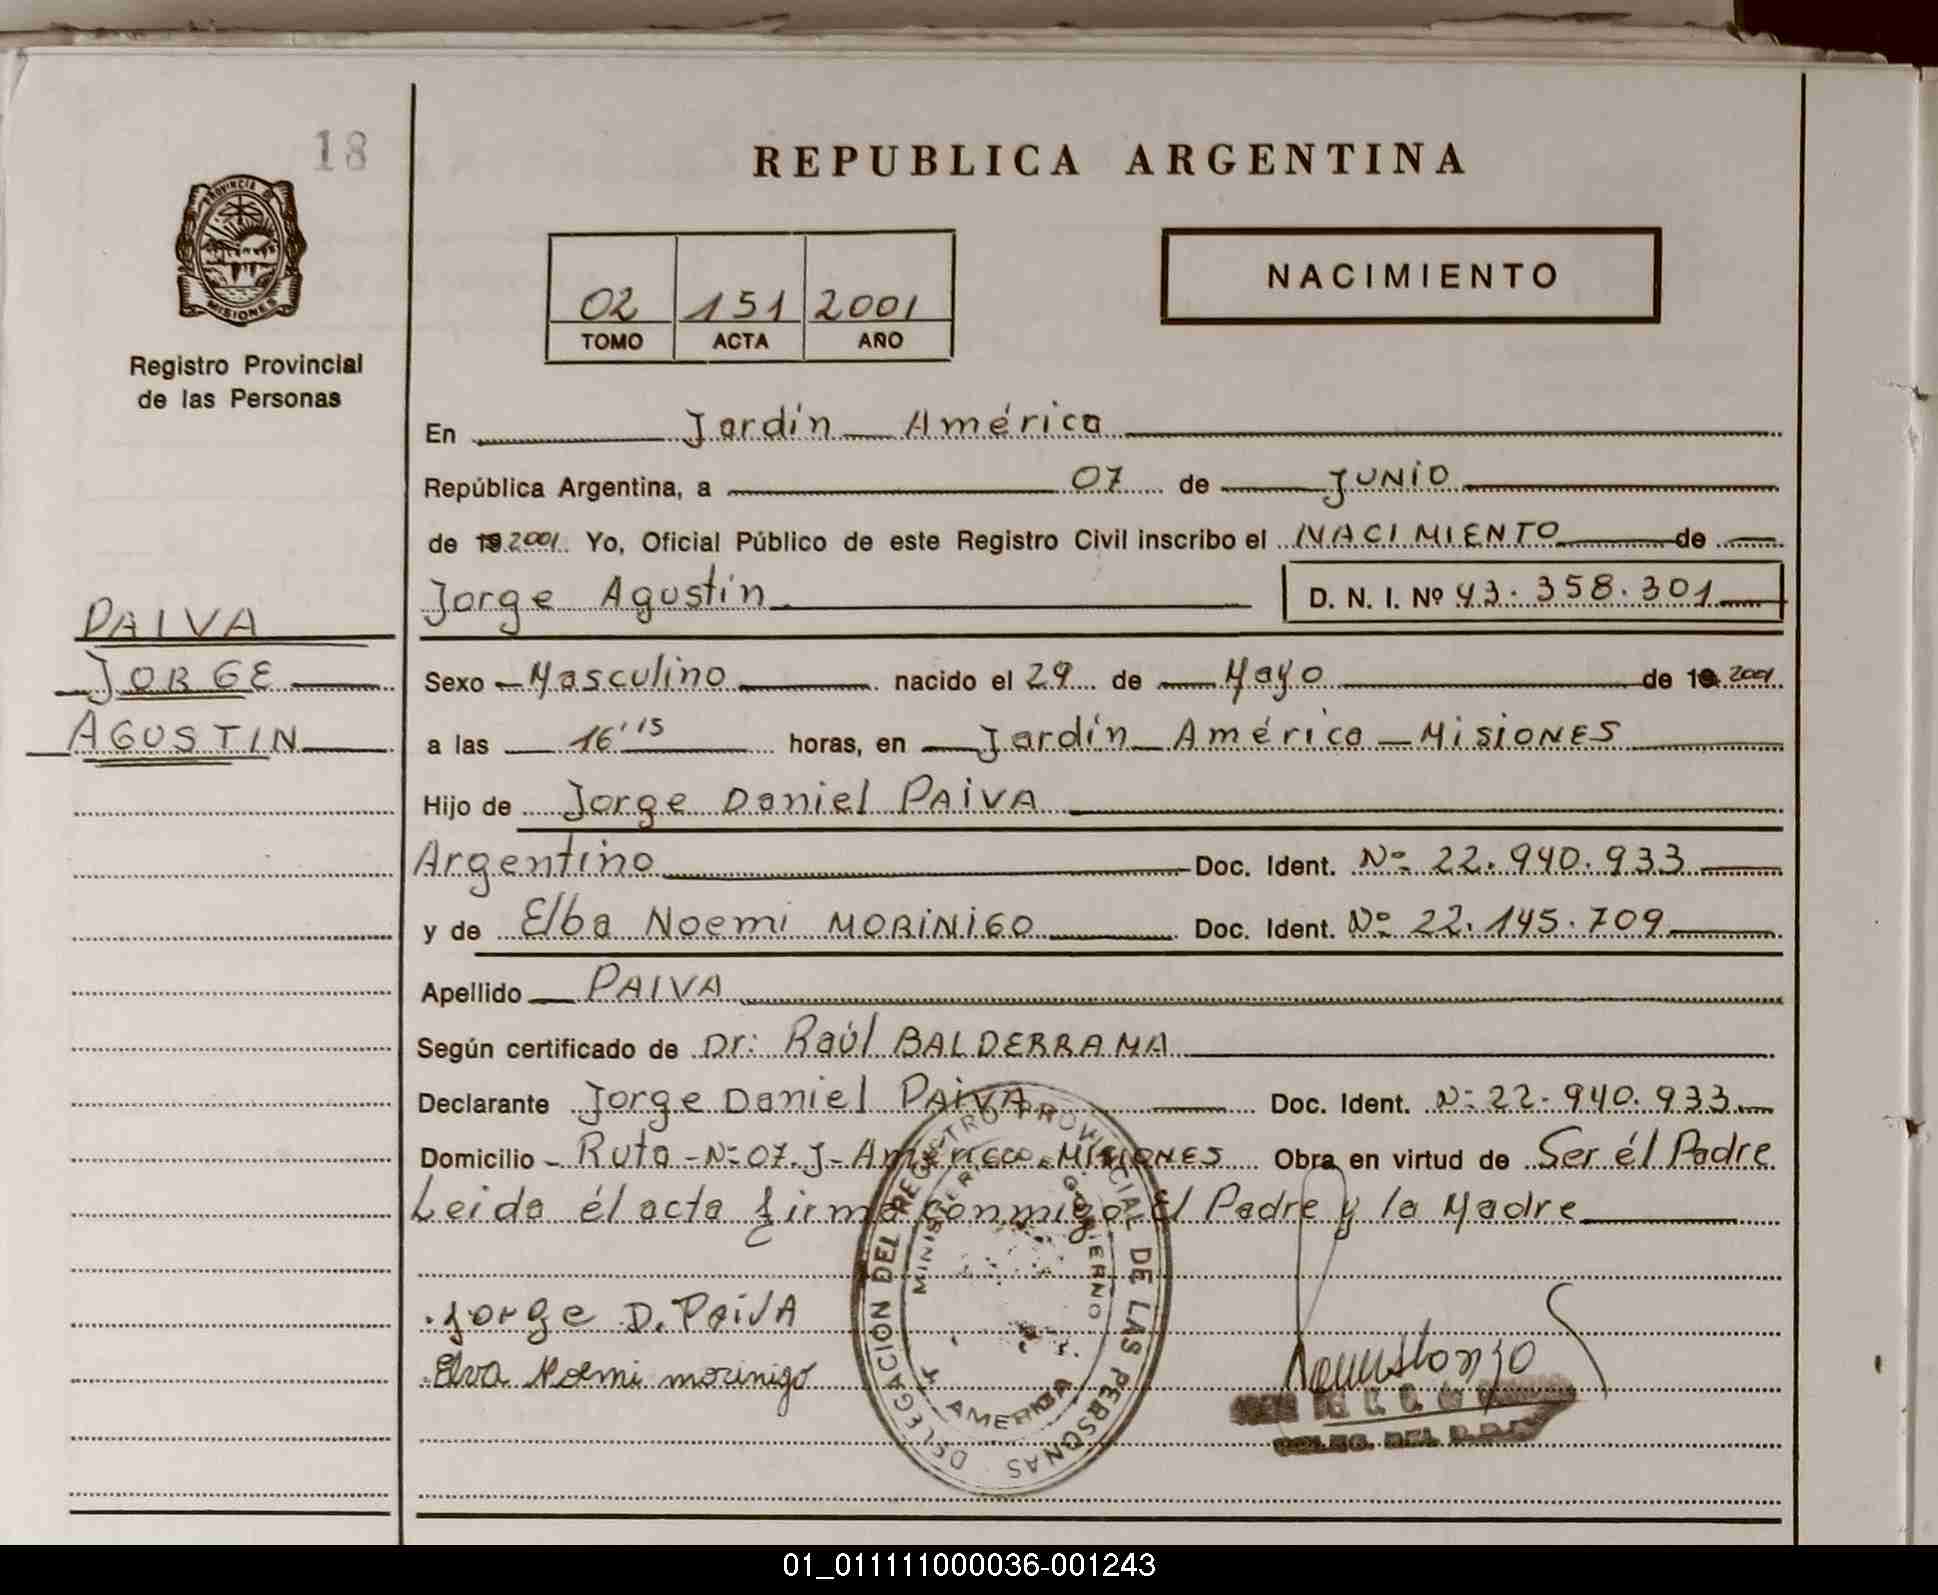 18
PROVINCIA DE
MISIONES
Registro Provincial
de las Personas
PAIVA
JORGE
AGUSTIN
REPUBLICA ARGENTINA
02 151 2001
TOMO ACTA AÑO
NACIMIENTO
En Jardín América
República Argentina, a 07 de JUNIO
de 19 2001 Yo, Oficial Público de este Registro Civil inscribo el NACIMIENTO de
Jorge Agustín D. N. I. Nº 43.358.301
Sexo Masculino nacido el 29 de Mayo de 19 2001
a las 16'15 horas, en Jardín América - MISIONES
Hijo de Jorge Daniel PAIVA
Argentino Doc. Ident. Nº 22.940.933
y de Elba Noemi MORINIGO Doc. Ident. Nº 22.145.709
Apellido PAIVA
Según certificado de Dr: Raúl BALDERRAMA
Declarante Jorge Daniel PAIVA Doc. Ident. Nº 22.940.933
Domicilio Ruta Nº 07. J. América MISIONES Obra en virtud de Ser él Padre
Leida él acta firma conmigo él Padre y la Madre
Jorge D. PAIVA
Elva Noemi morinigo
DELEGACIÓN DEL REGISTRO PROVINCIAL DE LAS PERSONAS
MINISTERIO GOBIERNO
J. AMERICA
01_011111000036-001243